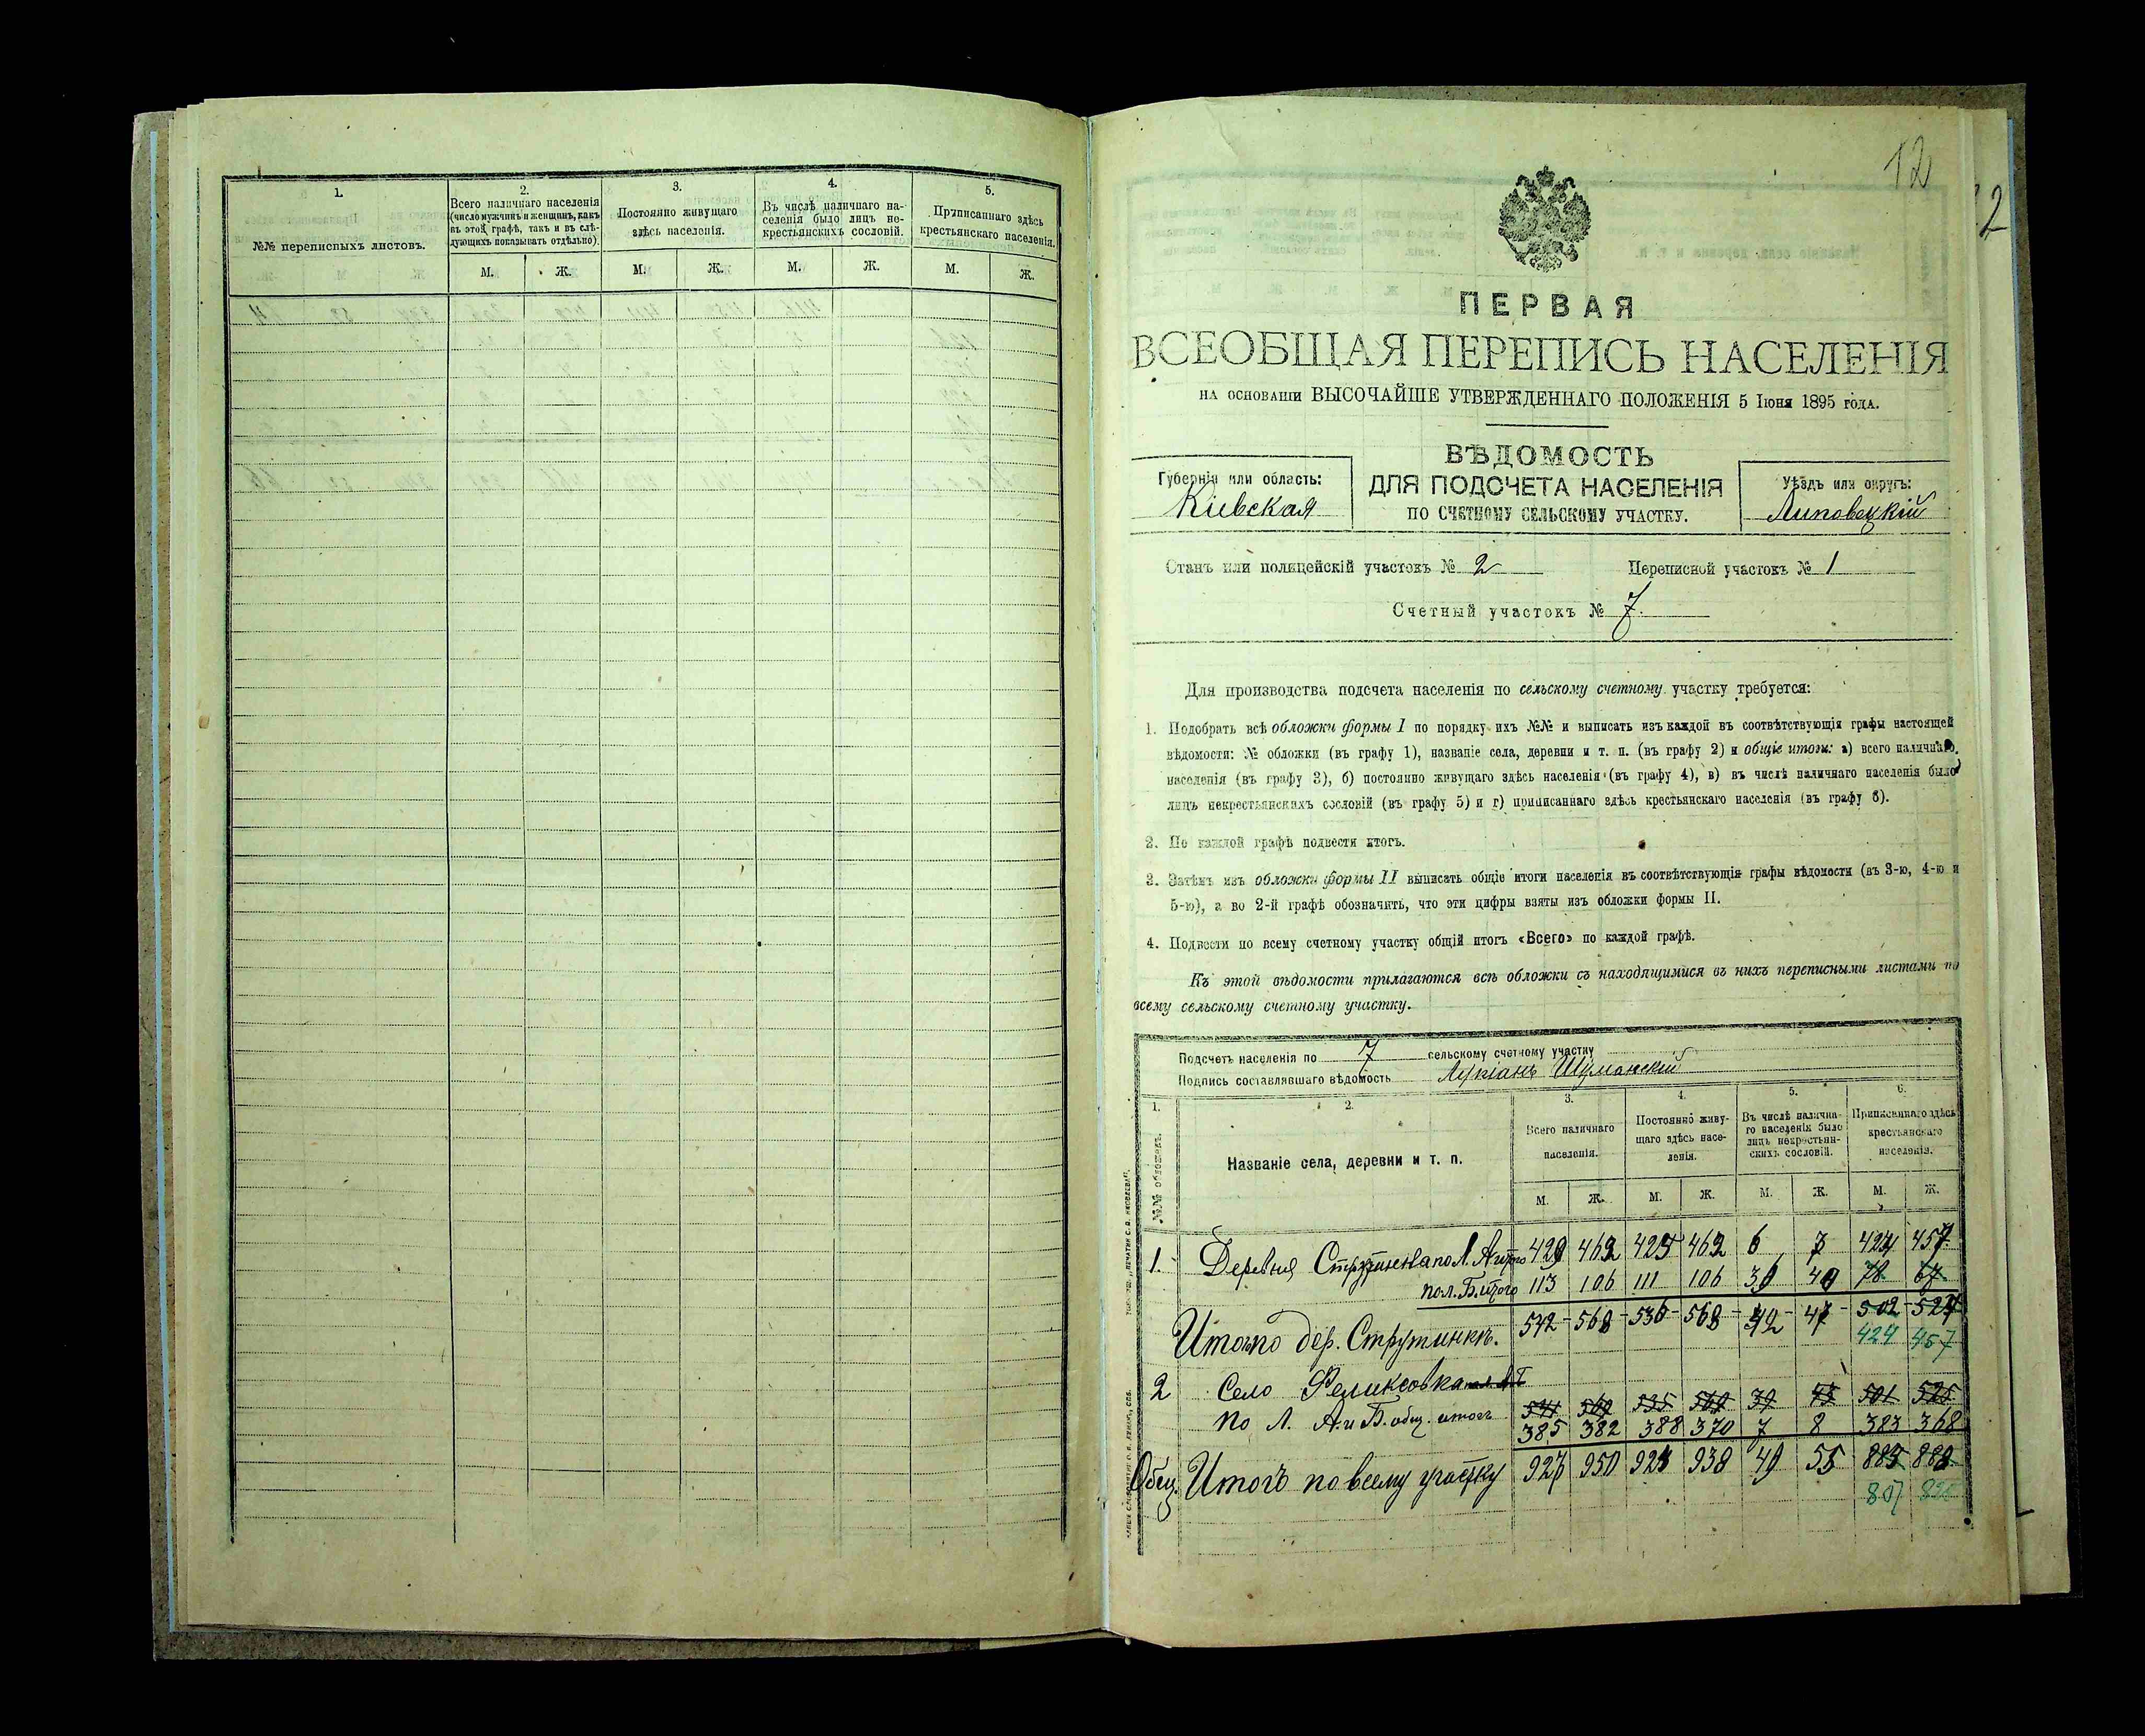 1.
№№ переписныхъ листовъ.
2.
Всего наличнаго населенія
(число мужчинъ и женщинъ, какъ
въ этой графѣ, такъ и въ слѣ-
дующихъ показывать отдѣльно).
3.
Постоянно живущаго
здѣсь населенія.
4.
Въ числѣ наличнаго на-
селенія было лицъ не-
крестьянскихъ сословій.
5.
Приписаннаго здѣсь
крестьянскаго населенія.
М. Ж. М. Ж. М. Ж. М. Ж.
12
2
ПЕРВАЯ
ВСЕОБЩАЯ ПЕРЕПИСЬ НАСЕЛЕНІЯ
НА ОСНОВАНІИ ВЫСОЧАЙШЕ УТВЕРЖДЕННАГО ПОЛОЖЕНІЯ 5 Іюня 1895 года.
Губернія или область:
Кіевская
ВѢДОМОСТЬ
ДЛЯ ПОДСЧЕТА НАСЕЛЕНІЯ
ПО СЧЕТНОМУ СЕЛЬСКОМУ УЧАСТКУ.
Уѣздъ или округъ:
Липовецкій
Станъ или полицейскій участокъ № 2 Переписной участокъ № 1
Счетный участокъ № 7.
Для производства подсчета населенія по сельскому счетному участку требуется:
1. Подобрать всѣ обложки формы I по порядку ихъ №№ и выписать изъ каждой въ соотвѣтствующія графы настоящей
вѣдомости: № обложки (въ графу 1), названіе села, деревни и т. п. (въ графу 2) и общіе итоги: а) всего наличнаго
населенія (въ графу 3), б) постоянно живущаго здѣсь населенія (въ графу 4), в) въ числѣ наличнаго населенія было
лицъ некрестьянскихъ сословій (въ графу 5) и г) приписаннаго здѣсь крестьянскаго населенія (въ графу 6).
2. По каждой графѣ подвести итогъ.
3. Затѣмъ изъ обложки формы II выписать общіе итоги населенія въ соотвѣтствующія графы вѣдомости (въ 3-ю, 4-ю и
5-ю), а во 2-й графѣ обозначить, что эти цифры взяты изъ обложки формы II.
4. Подвести по всему счетному участку общій итогъ «Всего» по каждой графѣ.
Къ этой вѣдомости прилагаются всѣ обложки съ находящимися въ нихъ переписными листами по
всему сельскому счетному участку.
Подсчетъ населенія по 7 сельскому счетному участку
Подпись составлявшаго вѣдомость Шуманскій
1.
№№ обложекъ.
2.
Названіе села, деревни и т. п.
3.
Всего наличнаго
населенія.
4.
Постоянно живу-
щаго здѣсь насе-
ленія.
5.
Въ числѣ налична-
го населенія было
лицъ некрестьян-
скихъ сословій.
6.
Приписаннаго здѣсь
крестьянскаго
населенія.
М. Ж. М. Ж. М. Ж. М. Ж.
1. Деревня Струтинка по Л. А итого 429 462 425 462 6 7 424 457
по л. Б. итого 113 106 111 106 36 40 78 67
Итого по дер. Струтинкѣ. 542 568 536 568 42 47 502 524
424 457
2 Село Феликсовка
541 569 535 569 39 501 525
по Л. А. и Б. общ. итогъ 385 382 388 370 7 8 383 368
Общ. Итогъ по всему участку 927 950 924 938 49 55 885
807 825